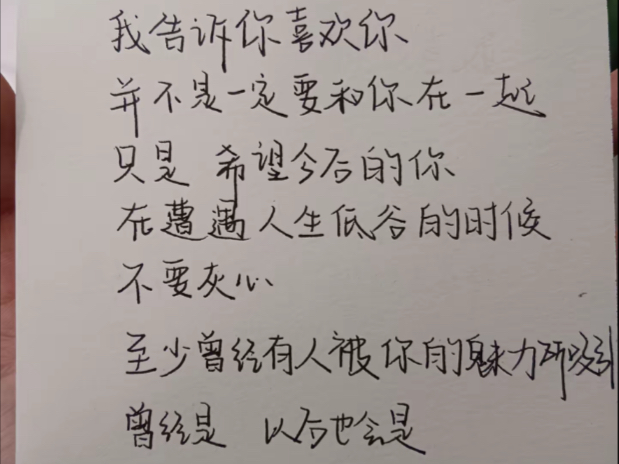 我告诉你喜欢你
并不是一定要和你在一起
只是 希望今后的你
在遭遇人生低谷的时候
不要灰心
至少曾经有人被你的魅力所吸引
曾经是 以后也会是